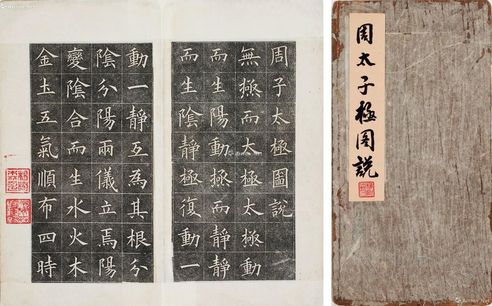 周太子極图說
周子太極圖說
無極而太極太極動
而生陽動極而靜靜
而生陰靜極復動一
動一靜互為其根分
陰分陽兩儀立焉陽
變陰合而生水火木
金土五氣順布四時